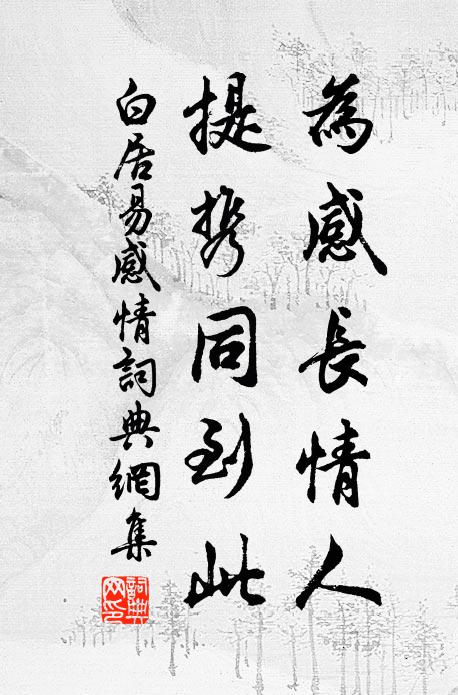 為感長情人
提携同到此
白居易感情詞典網集